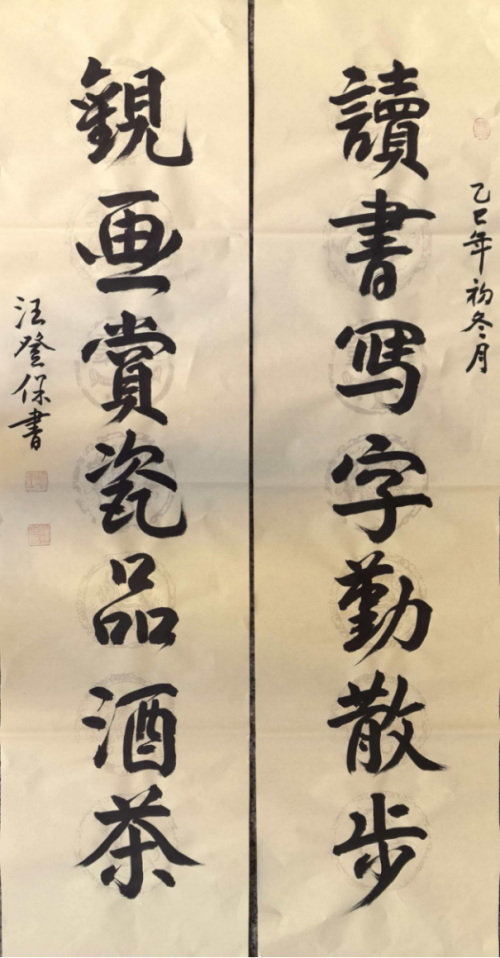 乙巳年初冬月
讀書写字勤散步
觀画賞瓷品酒茶
汪登保書